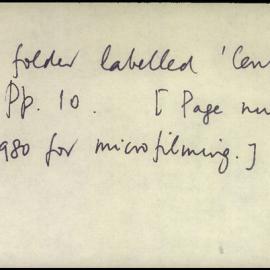 folder labelled 'Cen
Pp. 10. [ Page nu
980 for microfilming. ]